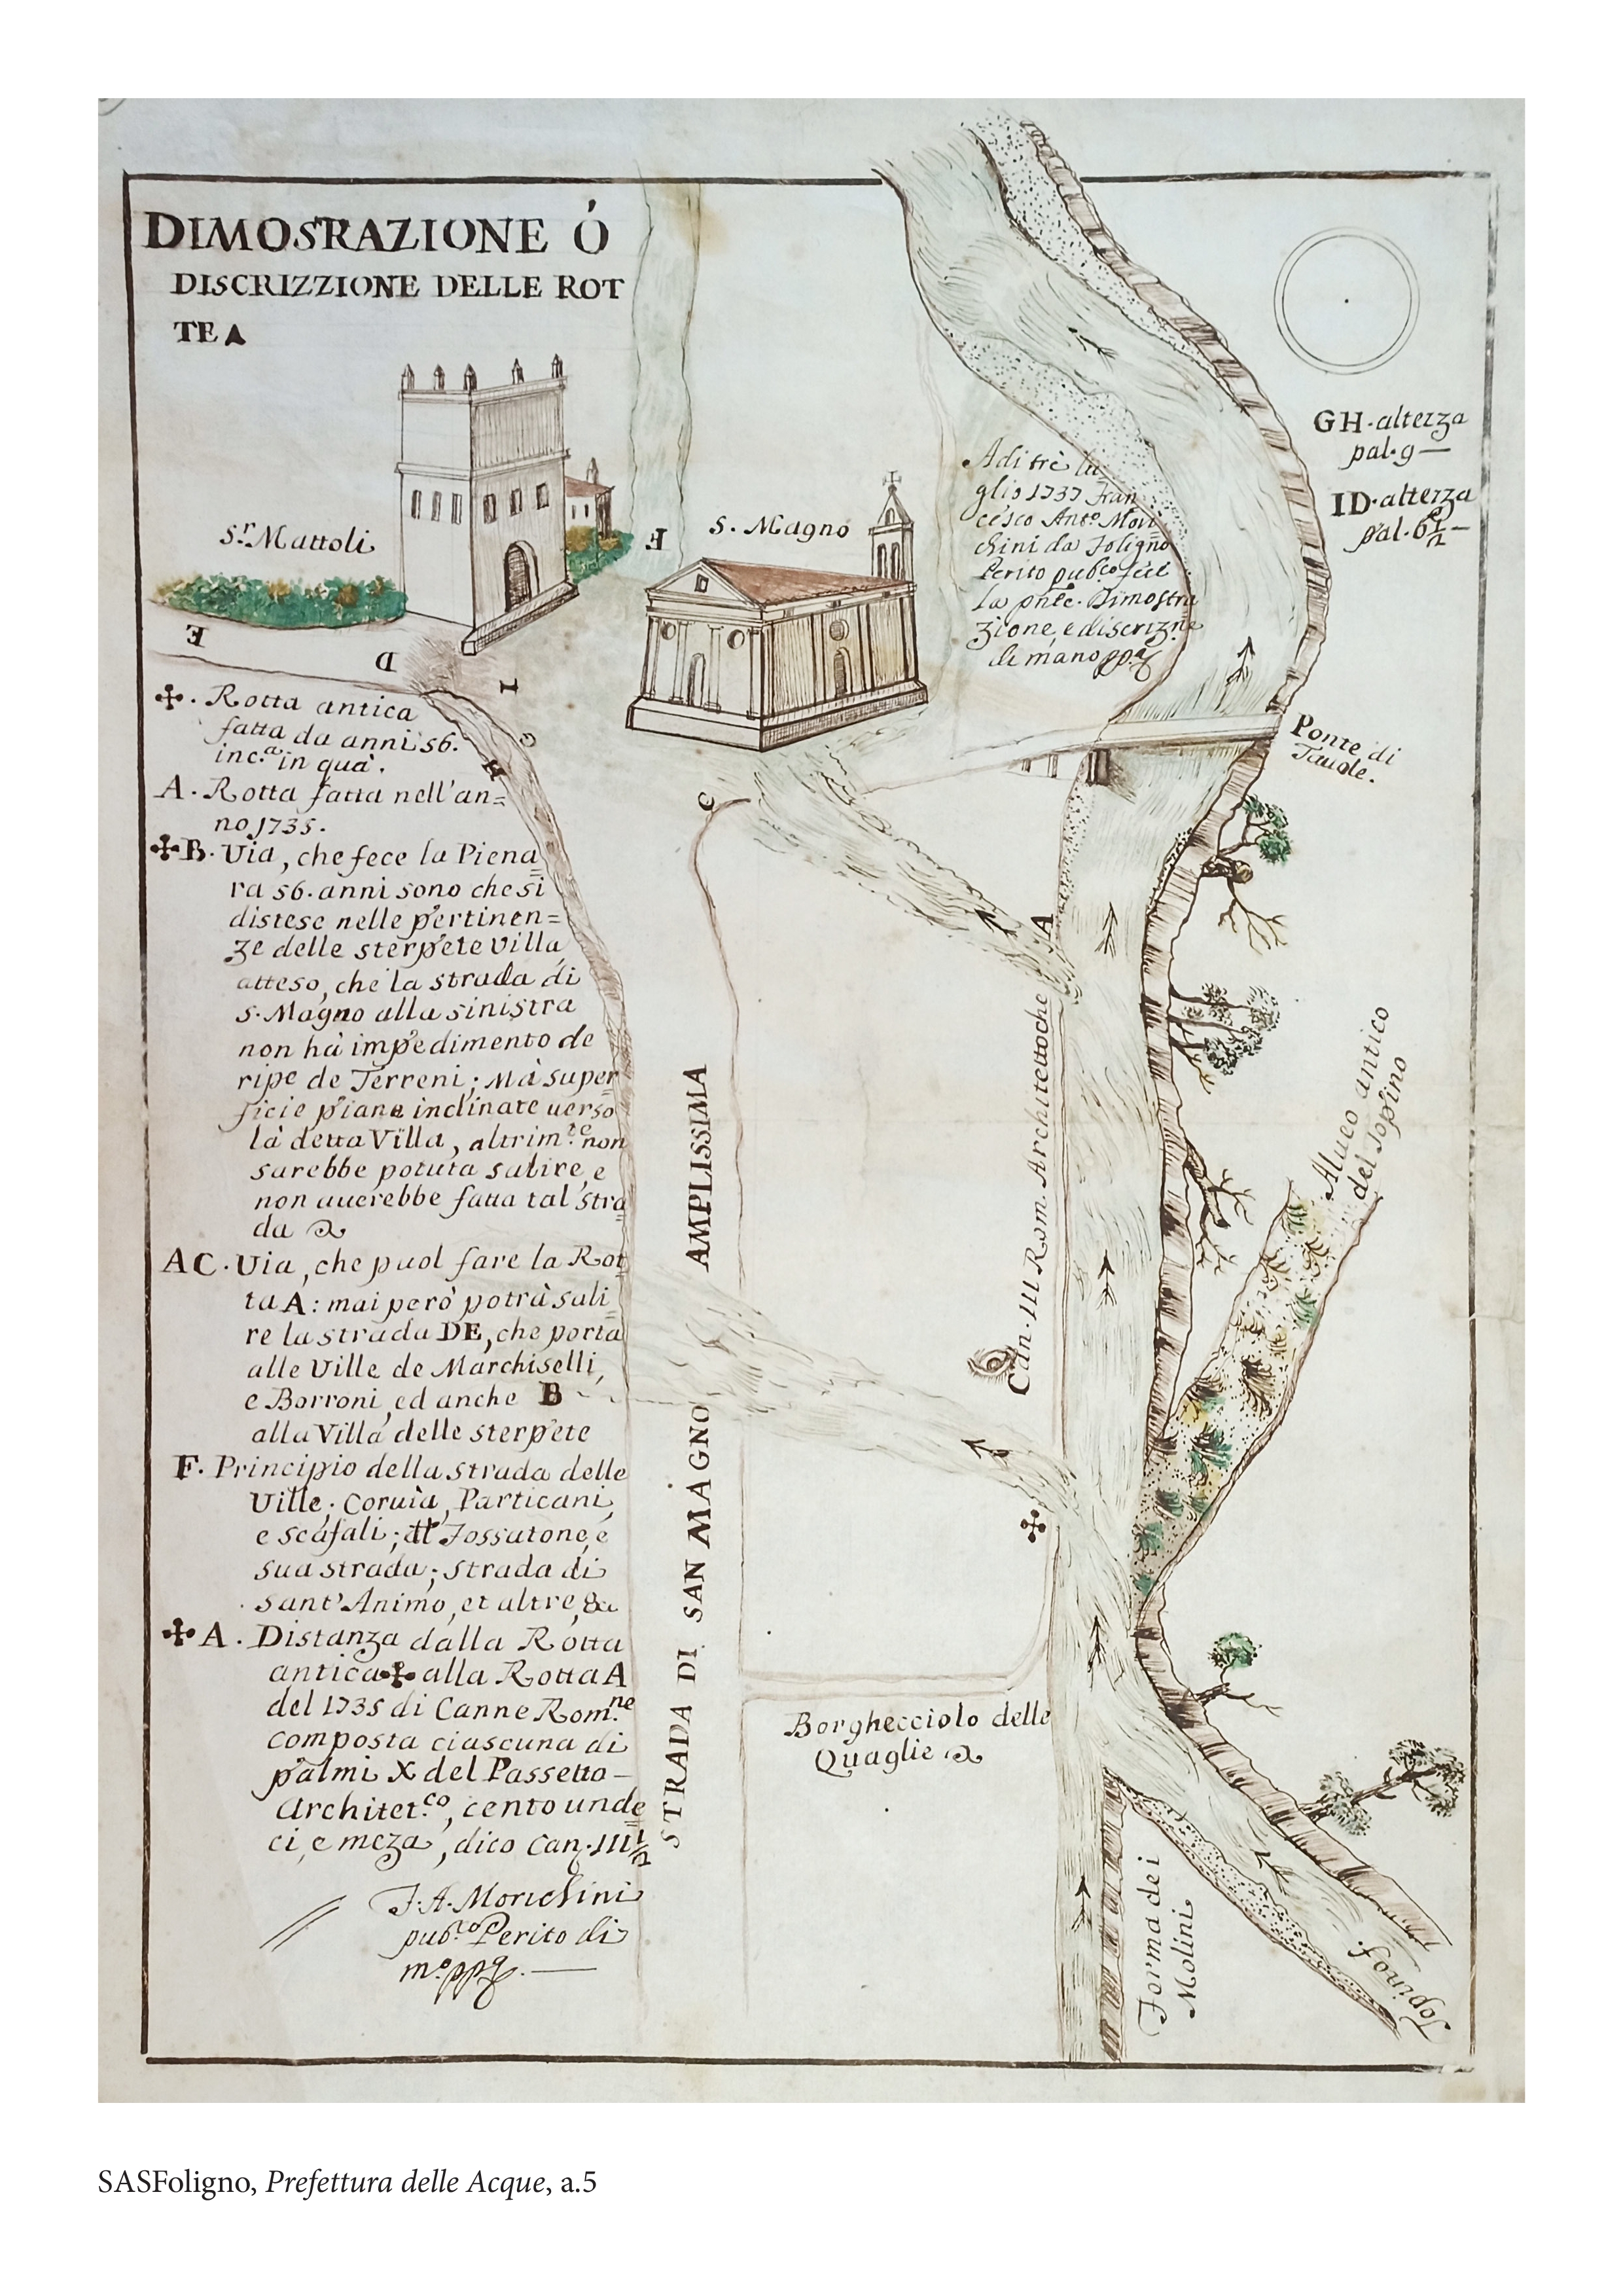 DIMOSTRAZIONE Ó
DISCRIZZIONE DELLE ROT
TE A
Sr. Mattoli
E
D
I
G
H
F
S. Magno
Adi trè lu
glio 1737 Fran
cesco Anto. Mori
chini da Foligno
Perito pubco. feci
la pnte. Dimostra
zione, e discrizne
di mano ppa
GH. alterza
pal. 9 —
ID. alterza
pal. 6 1/2 —
Ponte di
Tauole.
✣. Rotta antica
fatta da anni 56.
inca. in quà.
A. Rotta fatta nell'an=
no 1735.
✣B. Uia, che fece la Piena
ra 56. anni sono che si
distese nelle pertinen=
ze delle sterpete villa,
atteso, che la strada di
S. Magno alla sinistra
non hà impedimento de
ripe de Terreni; Mà super
ficie piane inclinate uerso
là detta Villa, altrimte. non
sarebbe potuta salire, e
non auerebbe fatta tal stra
da
AC. Uia, che puol fare la Rot
ta A: mai però potrà sali
re la strada DE, che porta
alle Ville de Marchiselli,
e Borroni, ed anche B
alla Villa delle sterpete
F. Principio della strada delle
Ville. Coruia, Particani,
e scafali; Il Fossatone, e
sua strada; strada di
sant'Animo, et altre, &a
✣A. Distanza dalla Rotta
antica ✣ alla Rotta A
del 1735 di Canne Romne.
composta ciascuna di
palmi X del Passetto
Architetco, cento unde
ci, e meza, dico Can. 111 1/2
F. A. Morichini
pubco. Perito di
mo. ppa. —
C
A
STRADA DI SAN MAGNO AMPLISSIMA
Can. 111 Rom. Architettoche
✣
Alueo antico
del Topino
Borghecciolo delle
Quaglie
Forma dei
Molini
Topino f.
SASFoligno, Prefettura delle Acque, a.5